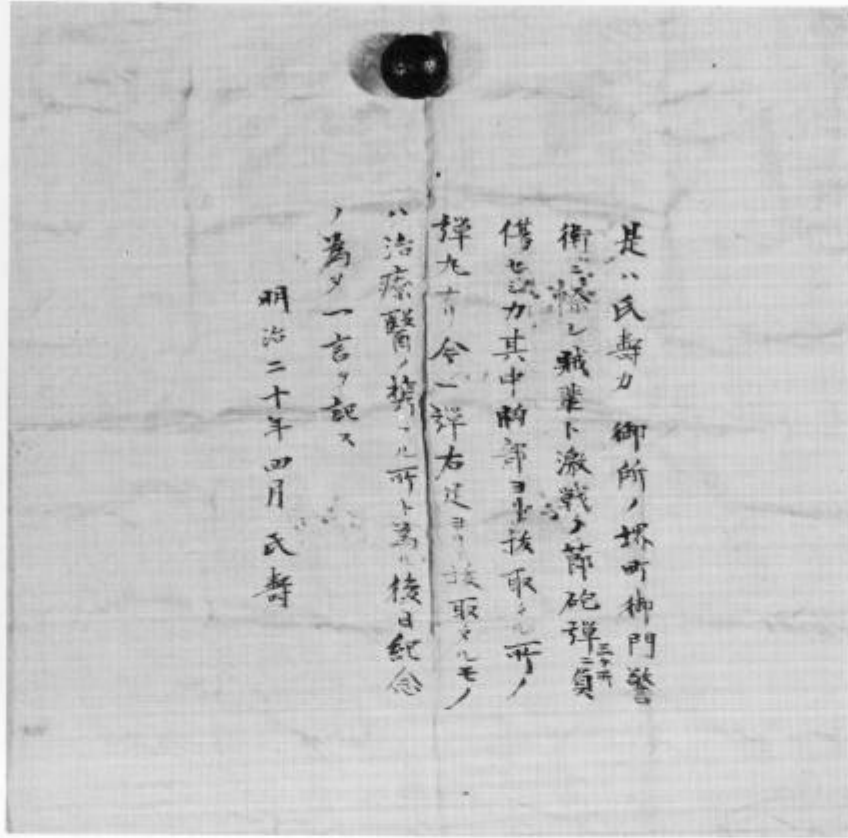 是ハ氏壽カ 御所ノ堺町御門警
衛ニ際シ賊輩ト激戦ノ節砲弾三ヶ所ニ負
傷セシカ其中 部ヨリ抜取タル所ノ
弾丸ナリ今一弾右足ヨリ抜取タルモノ
ハ治療醫ノ携フル所ト為ル後日紀念
ノ為メ一言ヲ記ス
明治二十年四月 氏壽